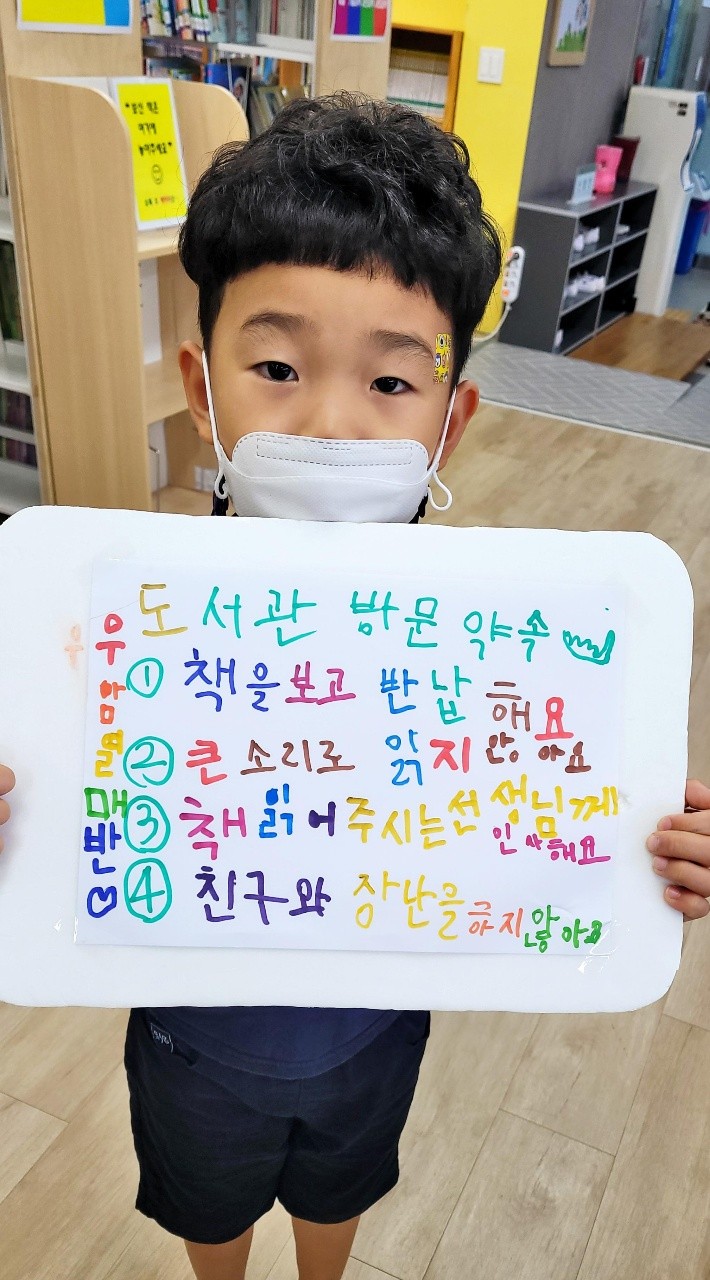 보신 책은
여기에
놓아주세요
도서관 방문 약속
우암열매반♡
① 책을 보고 반납 해요
② 큰 소리로 읽지 않아요
③ 책 읽어 주시는 선생님께
인사해요
④ 친구와 장난을 하지 않아요